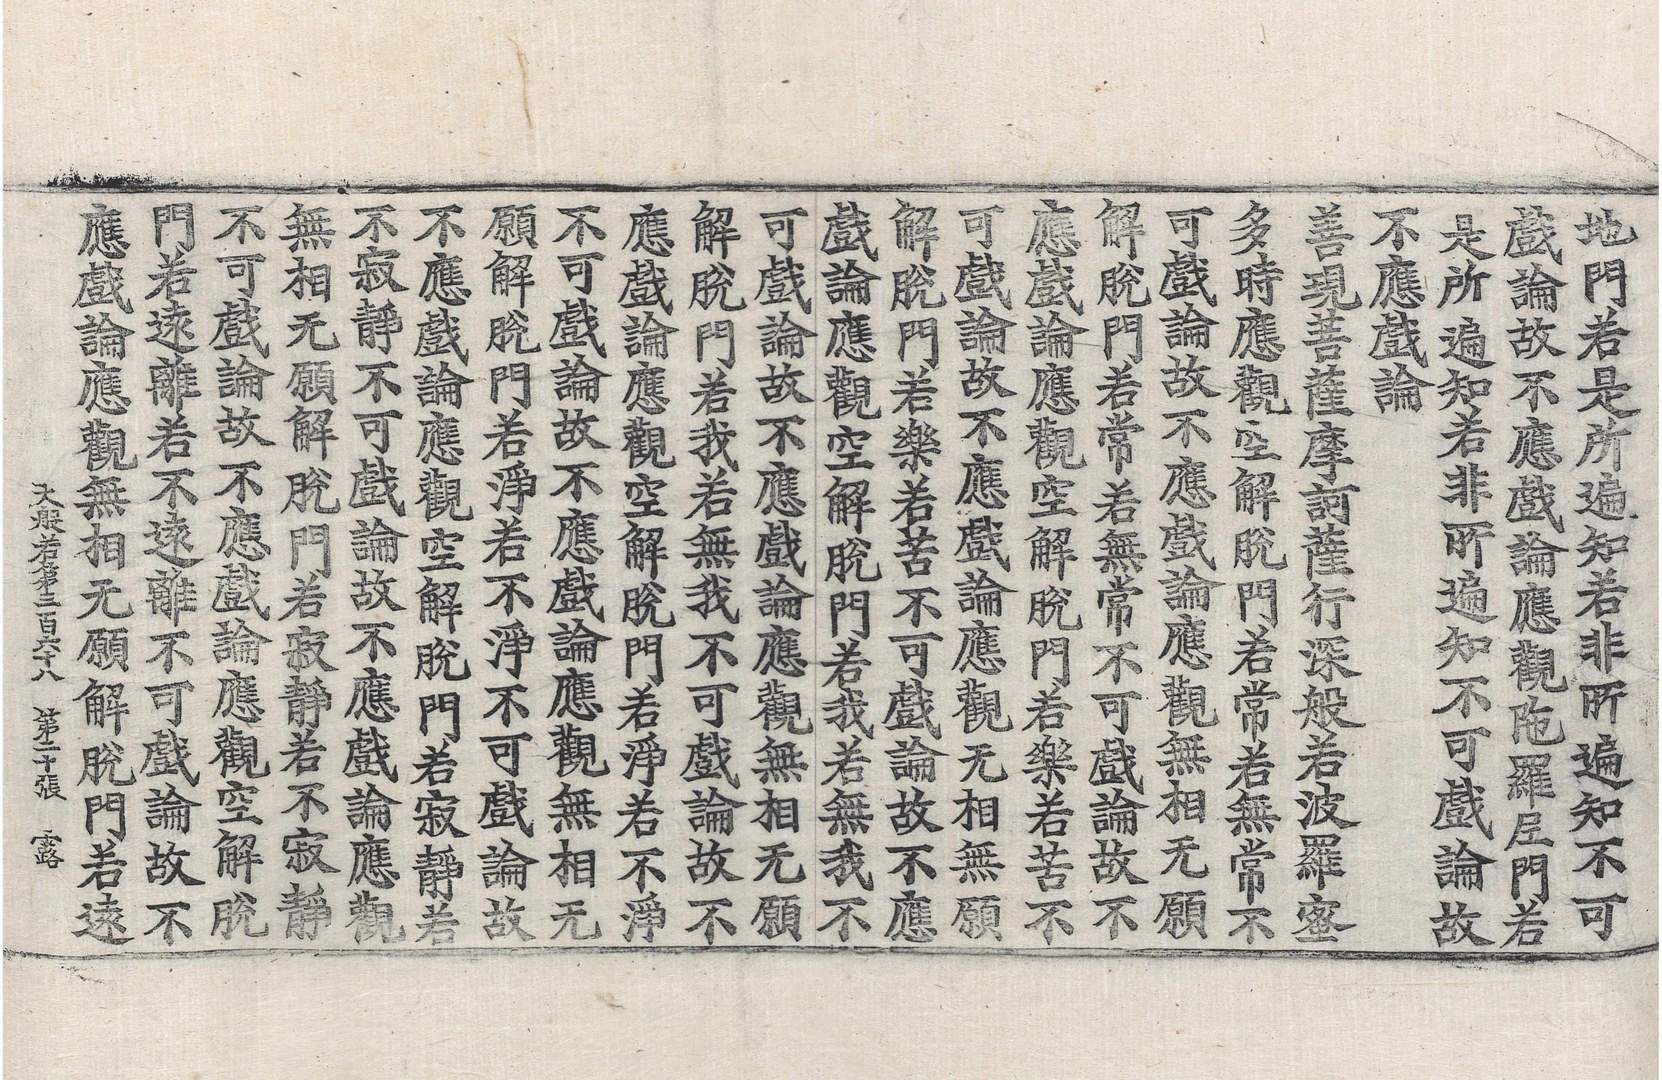 地門若是所遍知若非所遍知不可
戲論故不應戲論應觀陁羅尼門若
是所遍知若非所遍知不可戲論故
不應戲論
善現菩薩摩訶薩行深般若波羅蜜
多時應觀空解脫門若常若無常不
可戲論故不應戲論應觀無相无願
解脫門若常若無常不可戲論故不
應戲論應觀空解脫門若樂若苦不
可戲論故不應戲論應觀无相無願
解脫門若樂若苦不可戲論故不應
戲論應觀空解脫門若我若無我不
可戲論故不應戲論應觀無相无願
解脫門若我若無我不可戲論故不
應戲論應觀空解脫門若淨若不淨
不可戲論故不應戲論應觀無相无
願解脫門若淨若不淨不可戲論故
不應戲論應觀空解脫門若寂靜若
不寂靜不可戲論故不應戲論應觀
無相无願解脫門若寂靜若不寂靜
不可戲論故不應戲論應觀空解脫
門若遠離若不遠離不可戲論故不
應戲論應觀無相无願解脫門若遠
大般若第三百六十八 第二十張 露